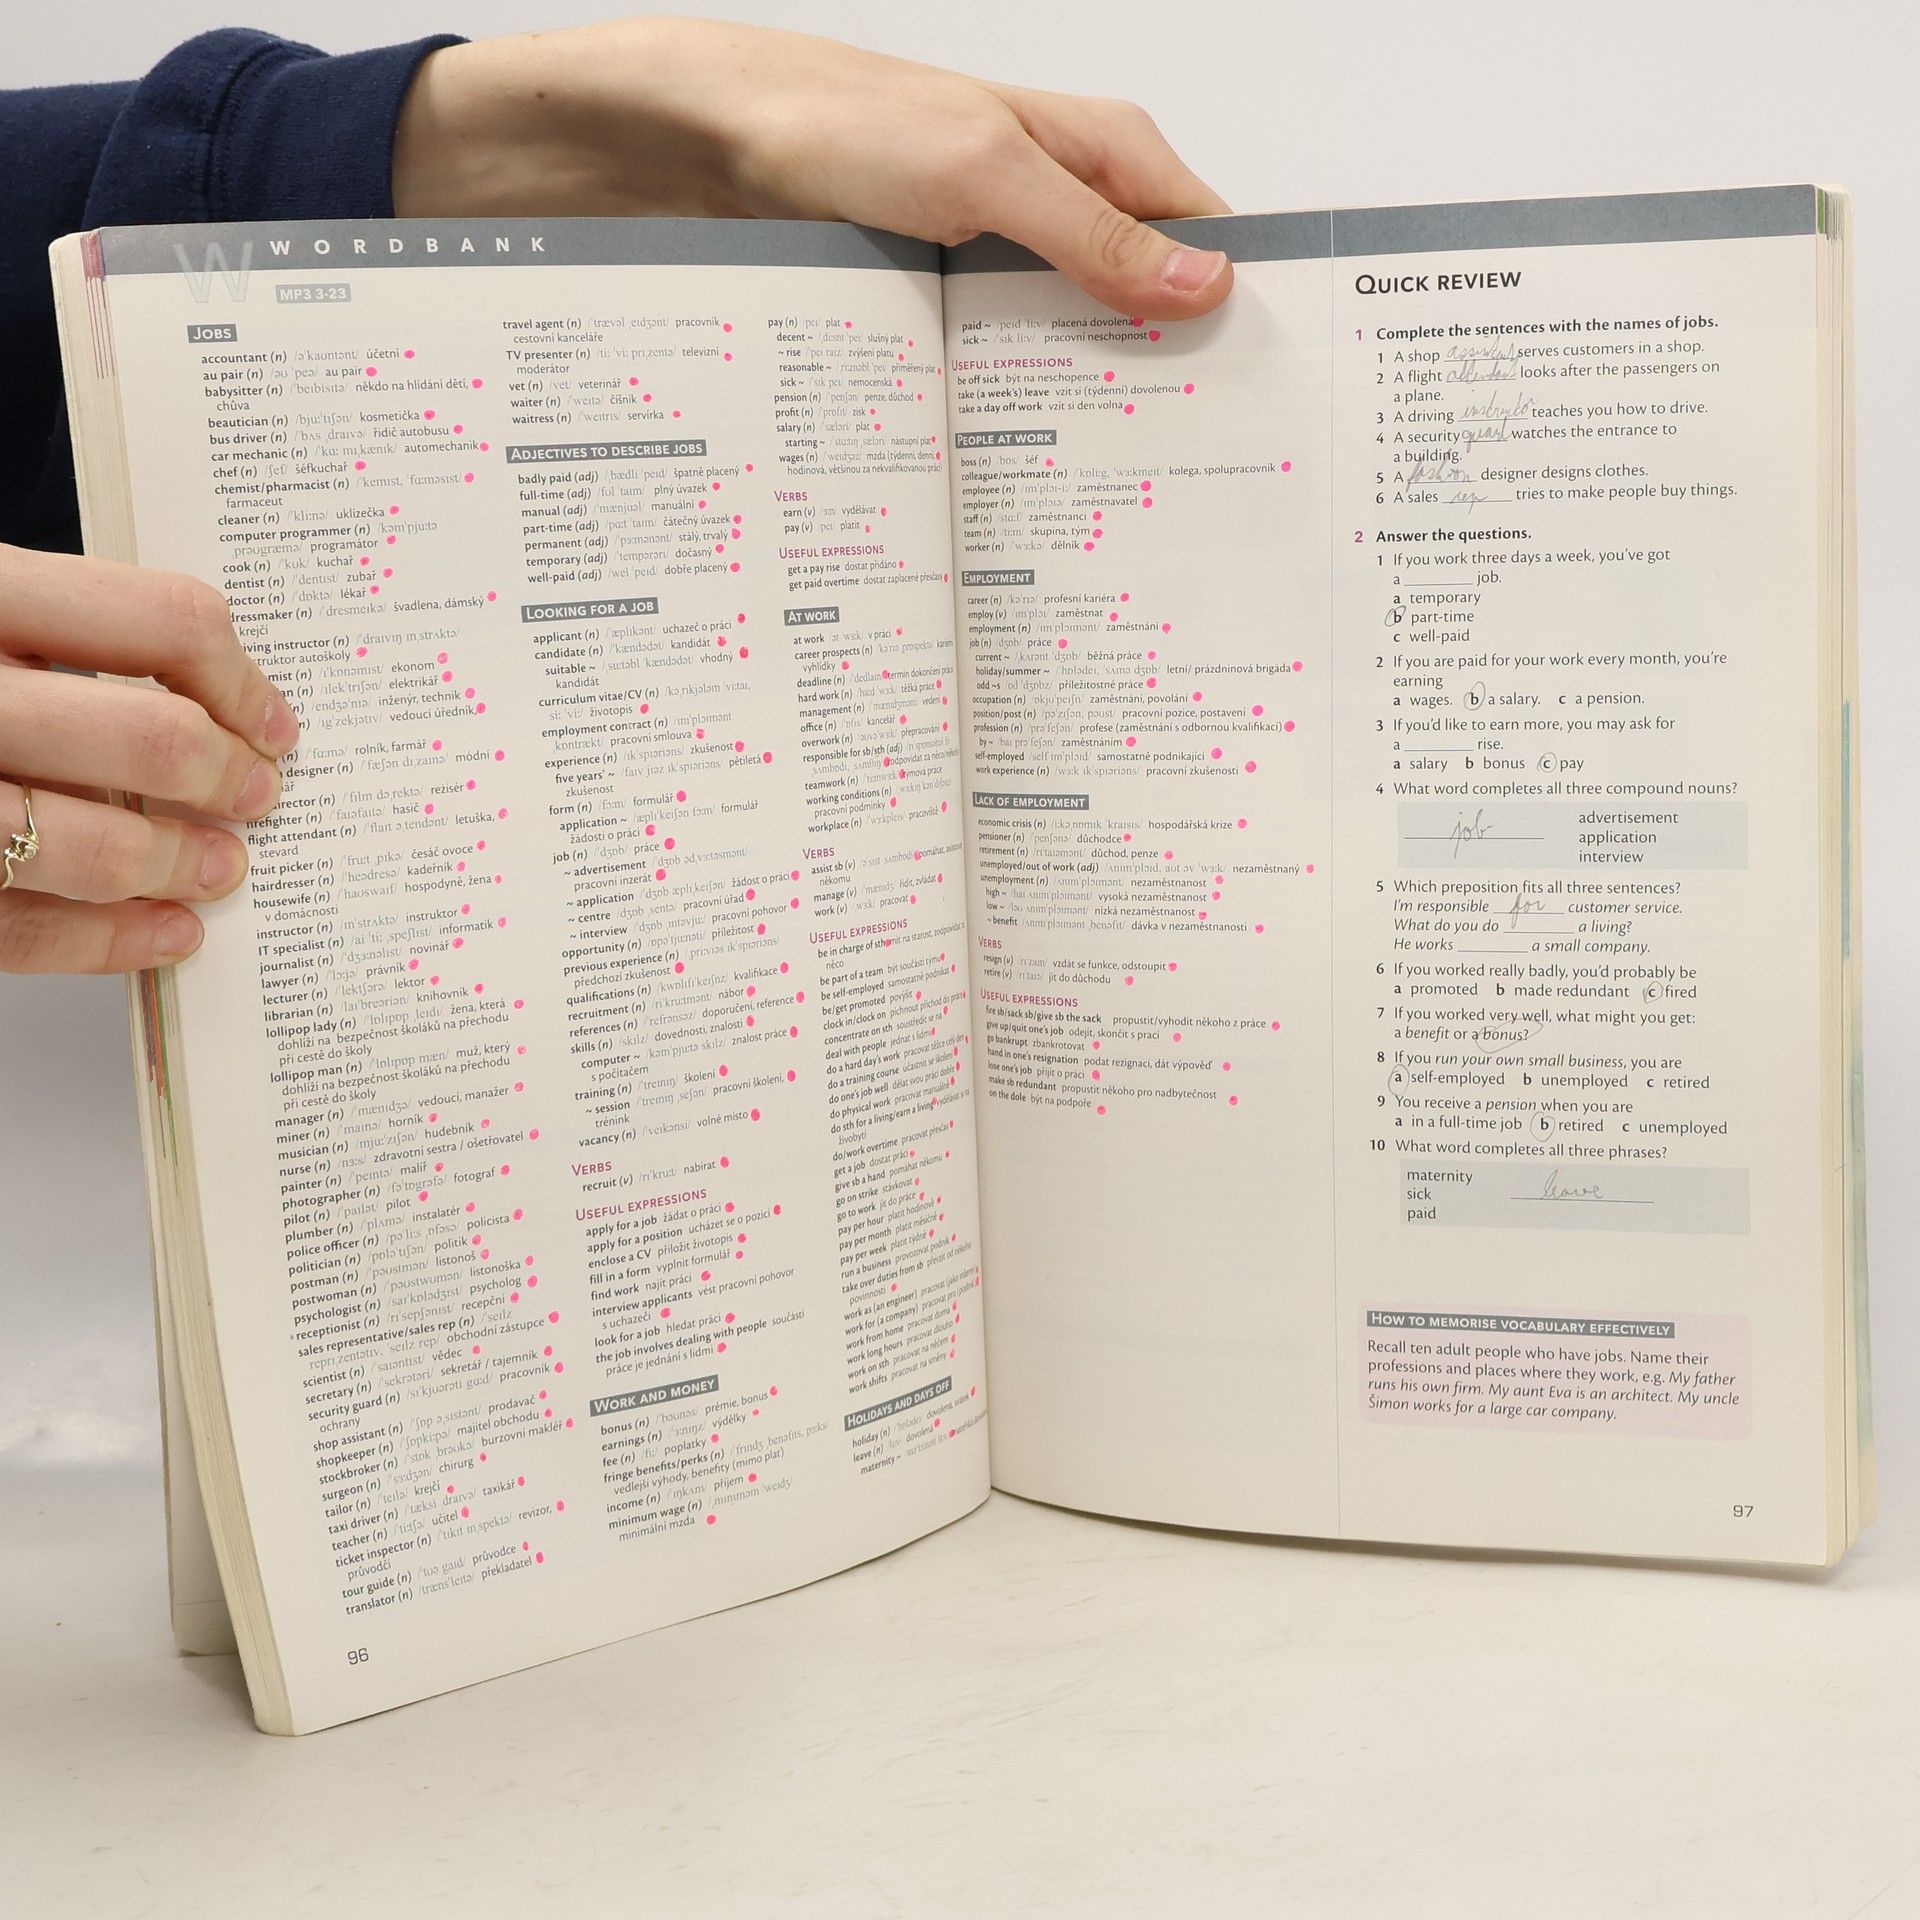 WORDBANK
MP3 3•23
JOBS
accountant (n) /əˈkaʊntənt/ účetní
au pair (n) /əʊ ˈpeə/ au pair
babysitter (n) /ˈbeɪbisɪtə/ někdo na hlídání dětí,
chůva
beautician (n) /bjuːˈtɪʃən/ kosmetička
bus driver (n) /ˈbʌs ˌdraɪvə/ řidič autobusu
car mechanic (n) /ˈkɑː mɪˌkænɪk/ automechanik
chef (n) /ʃef/ šéfkuchař
chemist/pharmacist (n) /ˈkemɪst, ˈfɑːməsɪst/
farmaceut
cleaner (n) /ˈkliːnə/ uklízečka
computer programmer (n) /kəmˈpjuːtə
ˌprəʊɡræmə/ programátor
cook (n) /ˈkʊk/ kuchař
dentist (n) /ˈdentɪst/ zubař
doctor (n) /ˈdɒktə/ lékař
dressmaker (n) /ˈdresmeɪkə/ švadlena, dámský
krejčí
iving instructor (n) /ˈdraɪvɪŋ ɪnˌstrʌktə/
struktor autoškoly
mist (n) /ɪˈkɒnəmɪst/ ekonom
an (n) /ɪlekˈtrɪʃən/ elektrikář
n) /endʒəˈnɪə/ inženýr, technik
n) /ɪɡˈzekjətɪv/ vedoucí úředník,
(n) /ˈfɑːmə/ rolník, farmář
designer (n) /ˈfæʃən dɪˌzaɪnə/ módní
ář
irector (n) /ˈfɪlm dəˌrektə/ režisér
firefighter (n) /ˈfaɪəfaɪtə/ hasič
flight attendant (n) /ˈflaɪt əˌtendənt/ letuška,
stevard
fruit picker (n) /ˈfruːt ˌpɪkə/ česáč ovoce
hairdresser (n) /ˈheədresə/ kadeřník
housewife (n) /ˈhaʊswaɪf/ hospodyně, žena
v domácnosti
instructor (n) /ɪnˈstrʌktə/ instruktor
IT specialist (n) /aɪ ˈtiː ˌspeʃlɪst/ informatik
journalist (n) /ˈdʒɜːnəlɪst/ novinář
lawyer (n) /ˈlɔːjə/ právník
lecturer (n) /ˈlektʃərə/ lektor
librarian (n) /laɪˈbreəriən/ knihovník
lollipop lady (n) /ˈlɒlɪpɒp ˌleɪdi/ žena, která
dohlíží na bezpečnost školáků na přechodu
při cestě do školy
lollipop man (n) /ˈlɒlɪpɒp mæn/ muž, který
dohlíží na bezpečnost školáků na přechodu
při cestě do školy
manager (n) /ˈmænɪdʒə/ vedoucí, manažer
miner (n) /ˈmaɪnə/ horník
musician (n) /mjuːˈzɪʃən/ hudebník
nurse (n) /nɜːs/ zdravotní sestra / ošetřovatel
painter (n) /ˈpeɪntə/ malíř
photographer (n) /fəˈtɒɡrəfə/ fotograf
pilot (n) /ˈpaɪlət/ pilot
plumber (n) /ˈplʌmə/ instalatér
police officer (n) /pəˈliːs ˌɒfəsə/ policista
politician (n) /pɒləˈtɪʃən/ politik
postman (n) /ˈpəʊstmən/ listonoš
postwoman (n) /ˈpəʊstwʊmən/ listonoška
psychologist (n) /saɪˈkɒlədʒɪst/ psycholog
receptionist (n) /rɪˈsepʃənɪst/ recepční
sales representative/sales rep (n) /ˈseɪlz
reprɪˌzentətɪv, ˈseɪlz rep/ obchodní zástupce
scientist (n) /ˈsaɪəntɪst/ vědec
secretary (n) /ˈsekrətəri/ sekretář / tajemník
security guard (n) /sɪˈkjʊərəti ɡɑːd/ pracovník
ochrany
shop assistant (n) /ˈʃɒp əˌsɪstənt/ prodavač
shopkeeper (n) /ˈʃɒpkiːpə/ majitel obchodu
stockbroker (n) /ˈstɒkˌbrəʊkə/ burzovní makléř
surgeon (n) /ˈsɜːdʒən/ chirurg
tailor (n) /ˈteɪlə/ krejčí
taxi driver (n) /ˈtæksi ˌdraɪvə/ taxikář
teacher (n) /ˈtiːtʃə/ učitel
ticket inspector (n) /ˈtɪkɪt ɪnˌspektə/ revizor,
průvodčí
tour guide (n) /ˈtʊə ɡaɪd/ průvodce
translator (n) /trænsˈleɪtə/ překladatel
travel agent (n) /ˈtrævəl ˌeɪdʒənt/ pracovník
cestovní kanceláře
TV presenter (n) /tiː ˈviː prɪˌzentə/ televizní
moderátor
vet (n) /vet/ veterinář
waiter (n) /ˈweɪtə/ číšník
waitress (n) /ˈweɪtrɪs/ servírka
ADJECTIVES TO DESCRIBE JOBS
badly paid (adj) /ˌbædli ˈpeɪd/ špatně placený
full-time (adj) /ˌfʊl ˈtaɪm/ plný úvazek
manual (adj) /ˈmænjuəl/ manuální
part-time (adj) /ˌpɑːt ˈtaɪm/ částečný úvazek
permanent (adj) /ˈpɜːmənənt/ stálý, trvalý
temporary (adj) /ˈtempərəri/ dočasný
well-paid (adj) /ˌwel ˈpeɪd/ dobře placený
LOOKING FOR A JOB
applicant (n) /ˈæplɪkənt/ uchazeč o práci
candidate (n) /ˈkændədət/ kandidát
suitable ~ /ˌsuːtəbl ˈkændədət/ vhodný
kandidát
curriculum vitae/CV (n) /kəˌrɪkjələm ˈviːtaɪ,
siː ˈviː/ životopis
employment contract (n) /ɪmˈplɔɪmənt
ˌkɒntrækt/ pracovní smlouva
experience (n) /ɪkˈspɪəriəns/ zkušenost
five years' ~ /faɪv jɪəz ɪkˈspɪəriəns/ pětiletá
zkušenost
form (n) /fɔːm/ formulář
application ~ /æplɪˈkeɪʃən fɔːm/ formulář
žádosti o práci
job (n) /ˈdʒɒb/ práce
~ advertisement /ˈdʒɒb ədˌvɜːtəsmənt/
pracovní inzerát
~ application /ˈdʒɒb æplɪˌkeɪʃən/ žádost o práci
~ centre /ˈdʒɒb ˌsentə/ pracovní úřad
~ interview /ˈdʒɒb ˌɪntəvjuː/ pracovní pohovor
opportunity (n) /ɒpəˈtjuːnəti/ příležitost
previous experience (n) /ˌpriːviəs ɪkˈspɪəriəns/
předchozí zkušenost
qualifications (n) /kwɒlɪfɪˈkeɪʃnz/ kvalifikace
recruitment (n) /rɪˈkruːtmənt/ nábor
references (n) /ˈrefrənsəz/ doporučení, reference
skills (n) /skɪlz/ dovednosti, znalosti
computer ~ /kəmˈpjuːtə skɪlz/ znalost práce
s počítačem
training (n) /ˈtreɪnɪŋ/ školení
~ session /ˈtreɪnɪŋ ˌseʃən/ pracovní školení,
trénink
vacancy (n) /ˈveɪkənsi/ volné místo
VERBS
recruit (v) /rɪˈkruːt/ nabírat
USEFUL EXPRESSIONS
apply for a job žádat o práci
apply for a position ucházet se o pozici
enclose a CV přiložit životopis
fill in a form vyplnit formulář
find work najít práci
interview applicants vést pracovní pohovor
s uchazeči
look for a job hledat práci
the job involves dealing with people součástí
práce je jednání s lidmi
WORK AND MONEY
bonus (n) /ˈbəʊnəs/ prémie, bonus
earnings (n) /ˈɜːnɪŋz/ výdělky
fee (n) /fiː/ poplatky
fringe benefits/perks (n) /ˈfrɪndʒ ˌbenəfɪts, pɜːks/
vedlejší výhody, benefity (mimo plat)
income (n) /ˈɪŋkʌm/ příjem
minimum wage (n) /ˌmɪnɪməm ˈweɪdʒ/
minimální mzda
pay (n) /peɪ/ plat
decent ~ /ˌdiːsnt ˈpeɪ/ slušný plat
~ rise /ˈpeɪ raɪz/ zvýšení platu
reasonable ~ /ˌriːznəbl ˈpeɪ/ přiměřený plat
sick ~ /ˈsɪk peɪ/ nemocenská
pension (n) /ˈpenʃən/ penze, důchod
profit (n) /ˈprɒfɪt/ zisk
salary (n) /ˈsæləri/ plat
starting ~ /ˈstɑːtɪŋ ˌsæləri/ nástupní plat
wages (n) /ˈweɪdʒəz/ mzda (týdenní, denní,
hodinová, většinou za nekvalifikovanou práci)
VERBS
earn (v) /ɜːn/ vydělávat
pay (v) /peɪ/ platit
USEFUL EXPRESSIONS
get a pay rise dostat přidáno
get paid overtime dostat zaplacené přesčasy
AT WORK
at work /ət ˈwɜːk/ v práci
career prospects (n) /kəˈrɪə ˌprɒspekts/ kariérní
vyhlídky
deadline (n) /ˈdedlaɪn/ termín dokončení práce
hard work (n) /ˌhɑːd ˈwɜːk/ těžká práce
management (n) /ˈmænɪdʒmənt/ vedení
office (n) /ˈɒfɪs/ kancelář
overwork (n) /ˌəʊvəˈwɜːk/ přepracování
responsible for sb/sth (adj)
zodpovídat za něco/někoho
teamwork (n) /ˈtiːmwɜːk/ týmová práce
working conditions (n)
pracovní podmínky
workplace (n) /ˈwɜːkpleɪs/ pracoviště
VERBS
assist sb (v) /əˈsɪst ˌsʌmbədi/ pomáhat, asistovat
někomu
manage (v) /ˈmænɪdʒ/ řídit, zvládat
work (v) /wɜːk/ pracovat
USEFUL EXPRESSIONS
be in charge of sth mít na starost, zodpovídat za
něco
be part of a team být součástí týmu
be self-employed samostatně podnikat
be/get promoted povýšit
clock in/clock on píchnout příchod do práce
concentrate on sth soustředit se na
deal with people jednat s lidmi
do a hard day's work pracovat těžce celý den
do a training course účastnit se školení
do one's job well dělat svou práci dobře
do physical work pracovat manuálně
do sth for a living/earn a living vydělávat si na
živobytí
do/work overtime pracovat přesčas
get a job dostat práci
give sb a hand pomáhat někomu
go on strike stávkovat
go to work jít do práce
pay per hour platit hodinově
pay per month platit měsíčně
pay per week platit týdně
run a business provozovat podnik
take over duties from sb převzít od někoho
povinnosti
work as (an engineer) pracovat (jako inženýr)
work for (a company) pracovat pro (podnik)
work from home pracovat doma
work long hours pracovat dlouho
work on sth pracovat na něčem
work shifts pracovat na směny
HOLIDAYS AND DAYS OFF
holiday (n) /ˈhɒlədeɪ/ dovolená, svátek
leave (n) /liːv/ dovolená
maternity ~
96
paid ~ /ˌpeɪd ˈliːv/ placená dovolená
sick ~ /ˈsɪk liːv/ pracovní neschopnost
USEFUL EXPRESSIONS
be off sick být na neschopence
take (a week's) leave vzít si (týdenní) dovolenou
take a day off work vzít si den volna
PEOPLE AT WORK
boss (n) /bɒs/ šéf
colleague/workmate (n) /ˈkɒliːɡ, ˈwɜːkmeɪt/ kolega, spolupracovník
employee (n) /ɪmˈplɔɪ-iː/ zaměstnanec
employer (n) /ɪmˈplɔɪə/ zaměstnavatel
staff (n) /stɑːf/ zaměstnanci
team (n) /tiːm/ skupina, tým
worker (n) /ˈwɜːkə/ dělník
EMPLOYMENT
career (n) /kəˈrɪə/ profesní kariéra
employ (v) /ɪmˈplɔɪ/ zaměstnat
employment (n) /ɪmˈplɔɪmənt/ zaměstnání
job (n) /dʒɒb/ práce
current ~ /ˌkʌrənt ˈdʒɒb/ běžná práce
holiday/summer ~ /ˈhɒlədeɪ, ˈsʌmə dʒɒb/ letní/ prázdninová brigáda
odd ~s /ɒd ˈdʒɒbz/ příležitostné práce
occupation (n) /ɒkjuˈpeɪʃn/ zaměstnání, povolání
position/post (n) /pəˈzɪʃən, pəʊst/ pracovní pozice, postavení
profession (n) /prəˈfeʃən/ profese (zaměstnání s odbornou kvalifikací)
by ~ /baɪ prəˈfeʃən/ zaměstnáním
self-employed /self ɪmˈplɔɪd/ samostatně podnikající
work experience (n) /ˈwɜːk ɪkˈspɪəriəns/ pracovní zkušenosti
LACK OF EMPLOYMENT
economic crisis (n) /iːkəˌnɒmɪk ˈkraɪsɪs/ hospodářská krize
pensioner (n) /ˈpenʃənə/ důchodce
retirement (n) /rɪˈtaɪəmənt/ důchod, penze
unemployed/out of work (adj) /ʌnɪmˈplɔɪd, aʊt əv ˈwɜːk/ nezaměstnaný
unemployment (n) /ʌnɪmˈplɔɪmənt/ nezaměstnanost
high ~ /haɪ ʌnɪmˈplɔɪmənt/ vysoká nezaměstnanost
low ~ /ləʊ ʌnɪmˈplɔɪmənt/ nízká nezaměstnanost
~ benefit /ʌnɪmˈplɔɪmənt ˌbenəfɪt/ dávka v nezaměstnanosti
VERBS
resign (v) /rɪˈzaɪn/ vzdát se funkce, odstoupit
retire (v) /rɪˈtaɪə/ jít do důchodu
USEFUL EXPRESSIONS
fire sb/sack sb/give sb the sack propustit/vyhodit někoho z práce
give up/quit one's job odejít, skončit s prací
go bankrupt zbankrotovat
hand in one's resignation podat rezignaci, dát výpověď
lose one's job přijít o práci
make sb redundant propustit někoho pro nadbytečnost
on the dole být na podpoře
QUICK REVIEW
1 Complete the sentences with the names of jobs.
1 A shop assistant serves customers in a shop.
2 A flight attendant looks after the passengers on
a plane.
3 A driving instructor teaches you how to drive.
4 A security guard watches the entrance to
a building.
5 A fashion designer designs clothes.
6 A sales rep tries to make people buy things.
2 Answer the questions.
1 If you work three days a week, you've got
a ________ job.
a temporary
b part-time
c well-paid
2 If you are paid for your work every month, you're
earning
a wages. b a salary. c a pension.
3 If you'd like to earn more, you may ask for
a ________ rise.
a salary b bonus c pay
4 What word completes all three compound nouns?
job
advertisement
application
interview
5 Which preposition fits all three sentences?
I'm responsible for customer service.
What do you do ________ a living?
He works ________ a small company.
6 If you worked really badly, you'd probably be
a promoted b made redundant c fired
7 If you worked very well, what might you get:
a benefit or a bonus?
8 If you run your own small business, you are
a self-employed b unemployed c retired
9 You receive a pension when you are
a in a full-time job b retired c unemployed
10 What word completes all three phrases?
maternity
sick leave
paid
HOW TO MEMORISE VOCABULARY EFFECTIVELY
Recall ten adult people who have jobs. Name their
professions and places where they work, e.g. My father
runs his own firm. My aunt Eva is an architect. My uncle
Šimon works for a large car company.
97